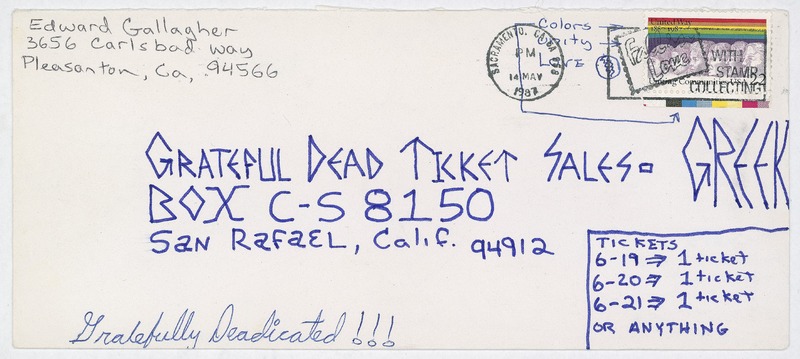 Edward Gallagher
3656 Carlsbad Way
Pleasanton, Ca, 94566
Colors
Love
SACRAMENTO, CA
PM
14 MAY
1987
United Way
Love
WITH
STAMP
COLLECTING
22
GRATEFUL DEAD TICKET SALES GREEK
BOX C-S 8150
SAN RAFAEL, Calif. 94912
TICKETS
6-19 ⇒ 1 ticket
6-20 ⇒ 1 ticket
6-21 ⇒ 1 ticket
OR ANYTHING
Gratefully Deadicated!!!